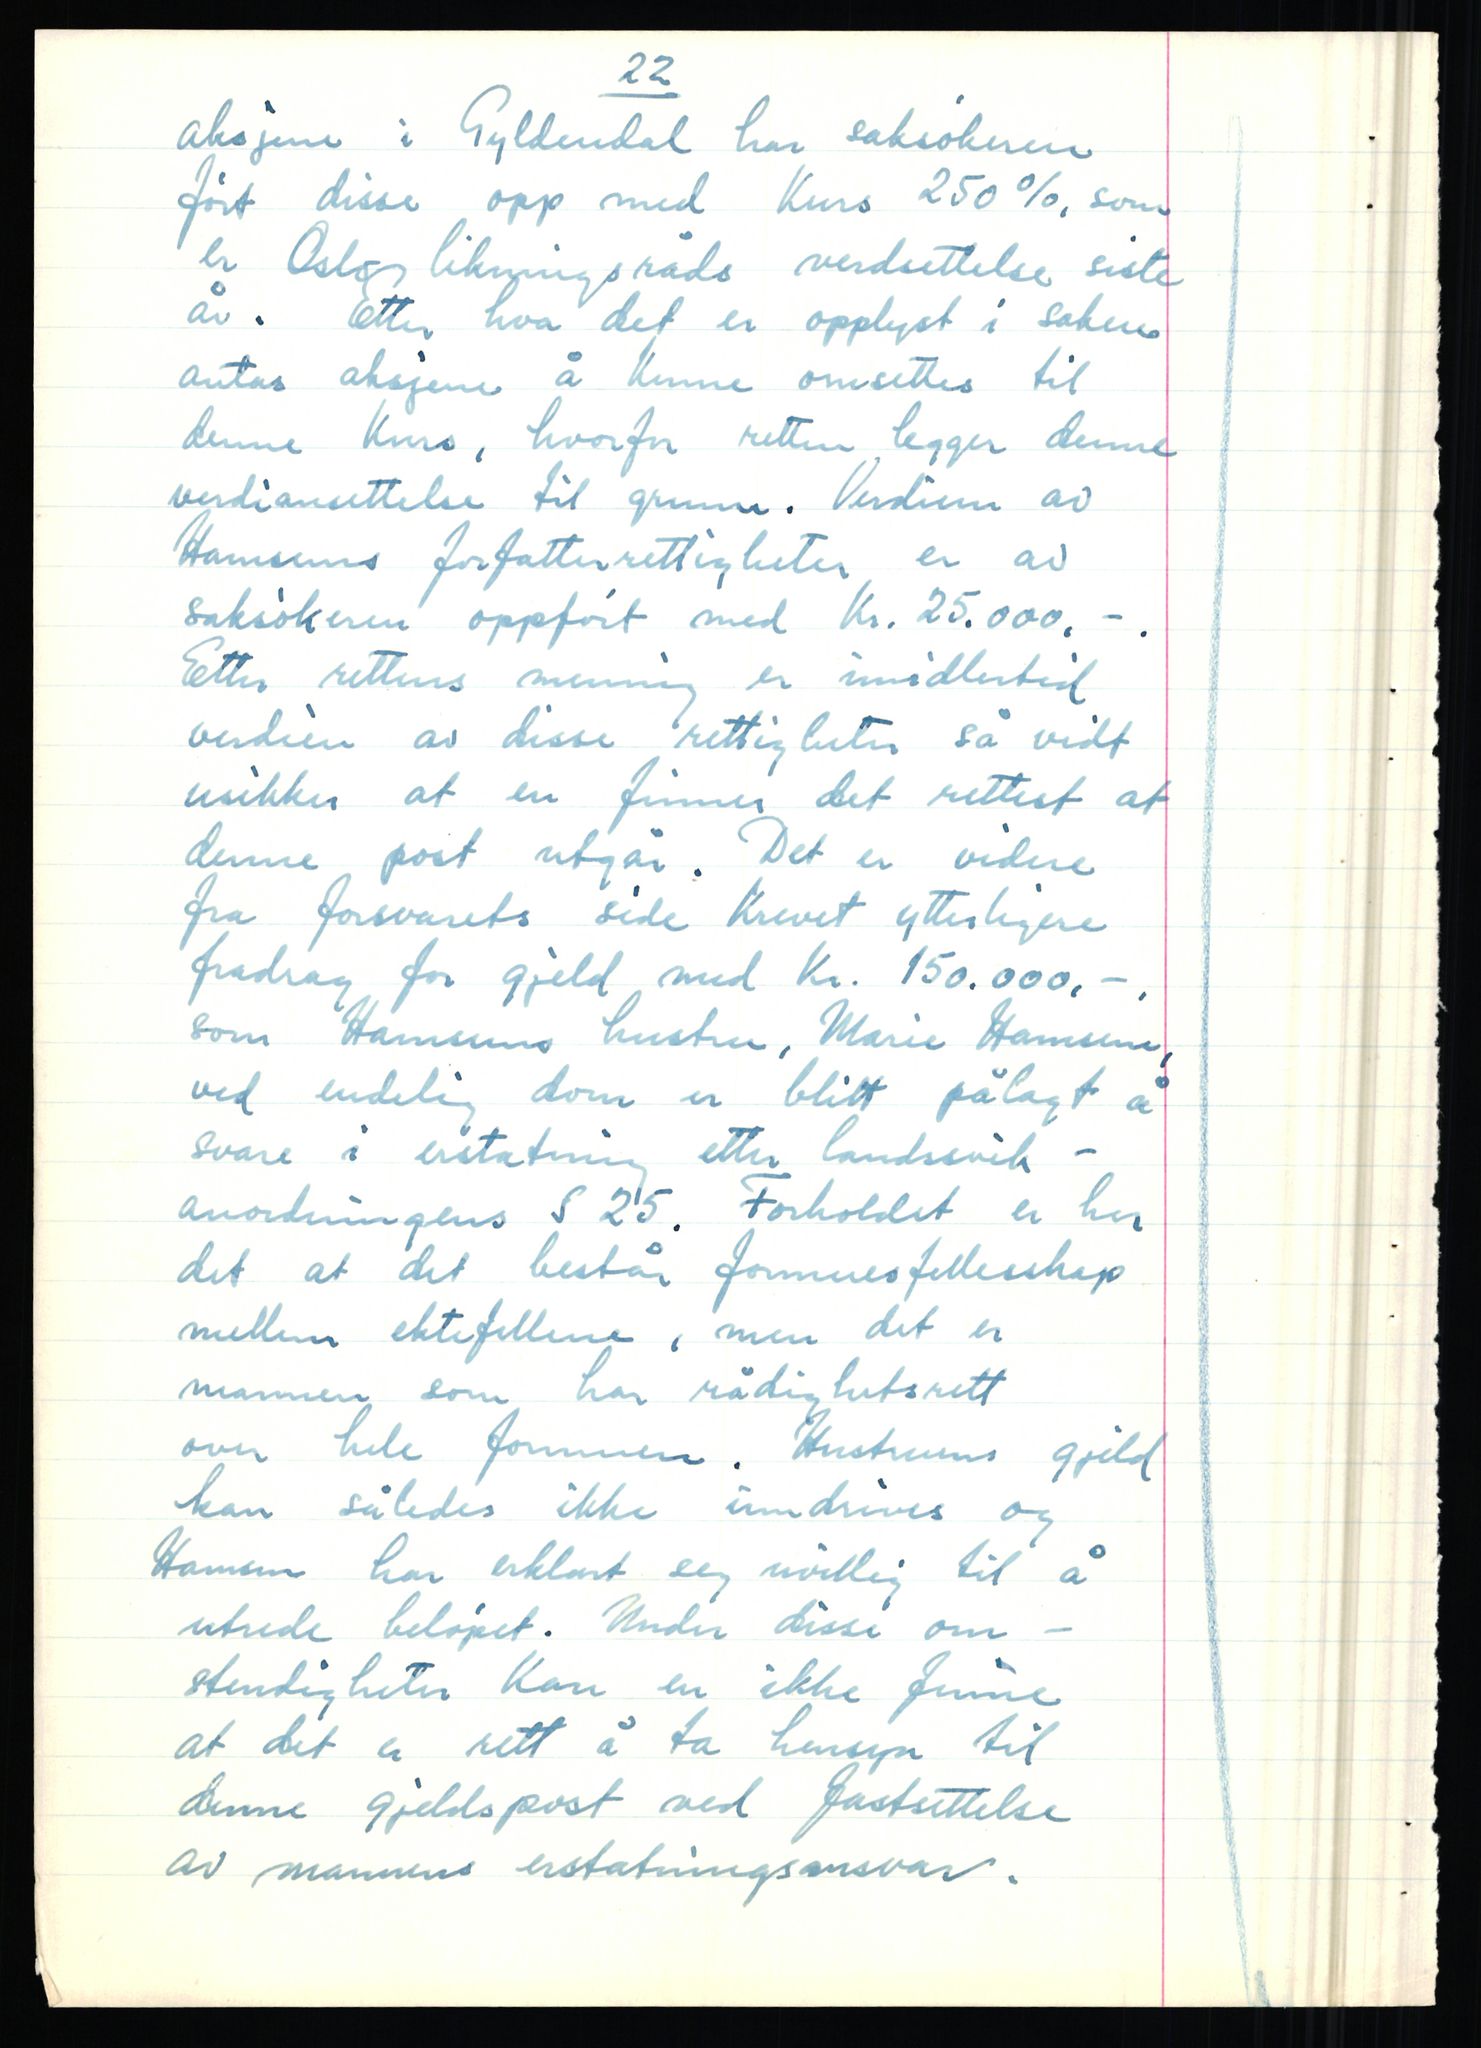 22
aksjene i Gyldendal har saksökeren
fört disse opp med Kurs 250 %, som
er Oslo likningsråds verdsettelse siste
år. Etter hva det er opplyst i saken
antas aksjene å kunne omsettes til
denne Kurs, hvorfor retten legger denne
verdiansettelse til grunn. Verdien av
Hamsuns forfatterrettigheter er av
saksökeren oppfört med Kr. 25.000.-.
Etter rettens mening er imidlertid
verdien av disse rettigheter så vidt
usikker at en finner det rettest at
denne post utgår. Det er videre
fra forsvarets side Krevet ytterligere
fradrag for gjeld med Kr. 150.000.-,
som Hamsuns hustru, Marie Hamsun,
ved endelig dom er blitt pålagt å
svare i erstatning etter landssvik-
anordningens § 25. Forholdet er her
det at det består formuesfellesskap
mellem ektefellene, men det er
mannen som har rådighetsrett
over hele formuen. Hustruens gjeld
kan således ikke inndrives og
Hamsun har erklært seg uvillig til å
utrede belöpet. Under disse om-
stendigheter Kan en ikke finne
at det er rett å ta hensyn til
denne gjeldspost ved fastsettelse
av mannens erstatningsansvar.